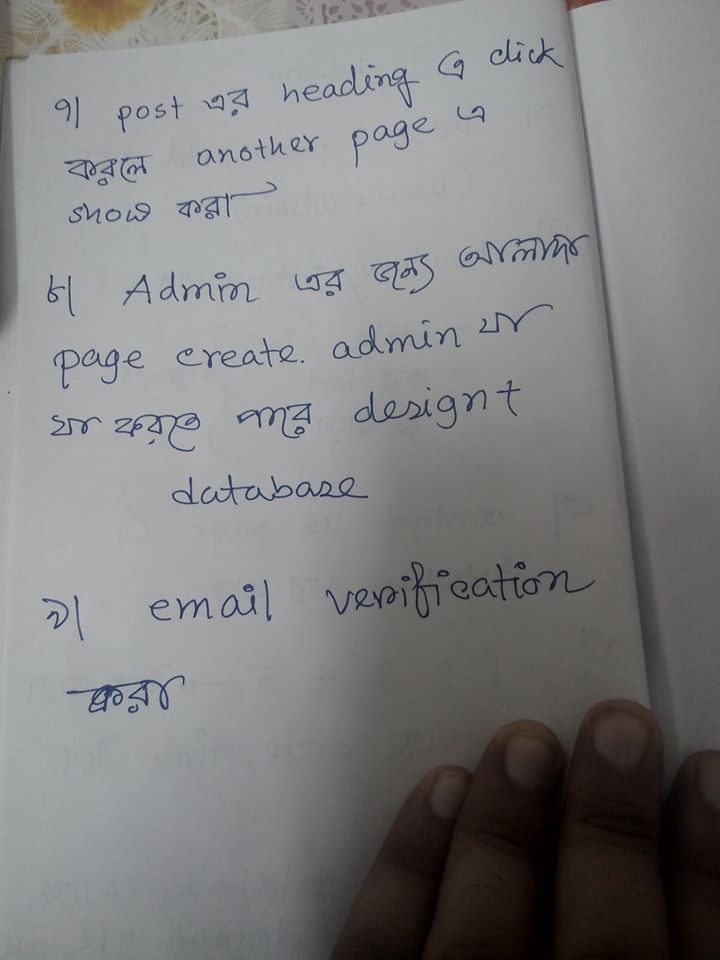 ৭| post এর heading এ click
করলে another page এ
show করা
৮| Admin এর জন্য আলাদা
page create. admin যা
যা করতে পারে design +
database
৯| email verification
করা